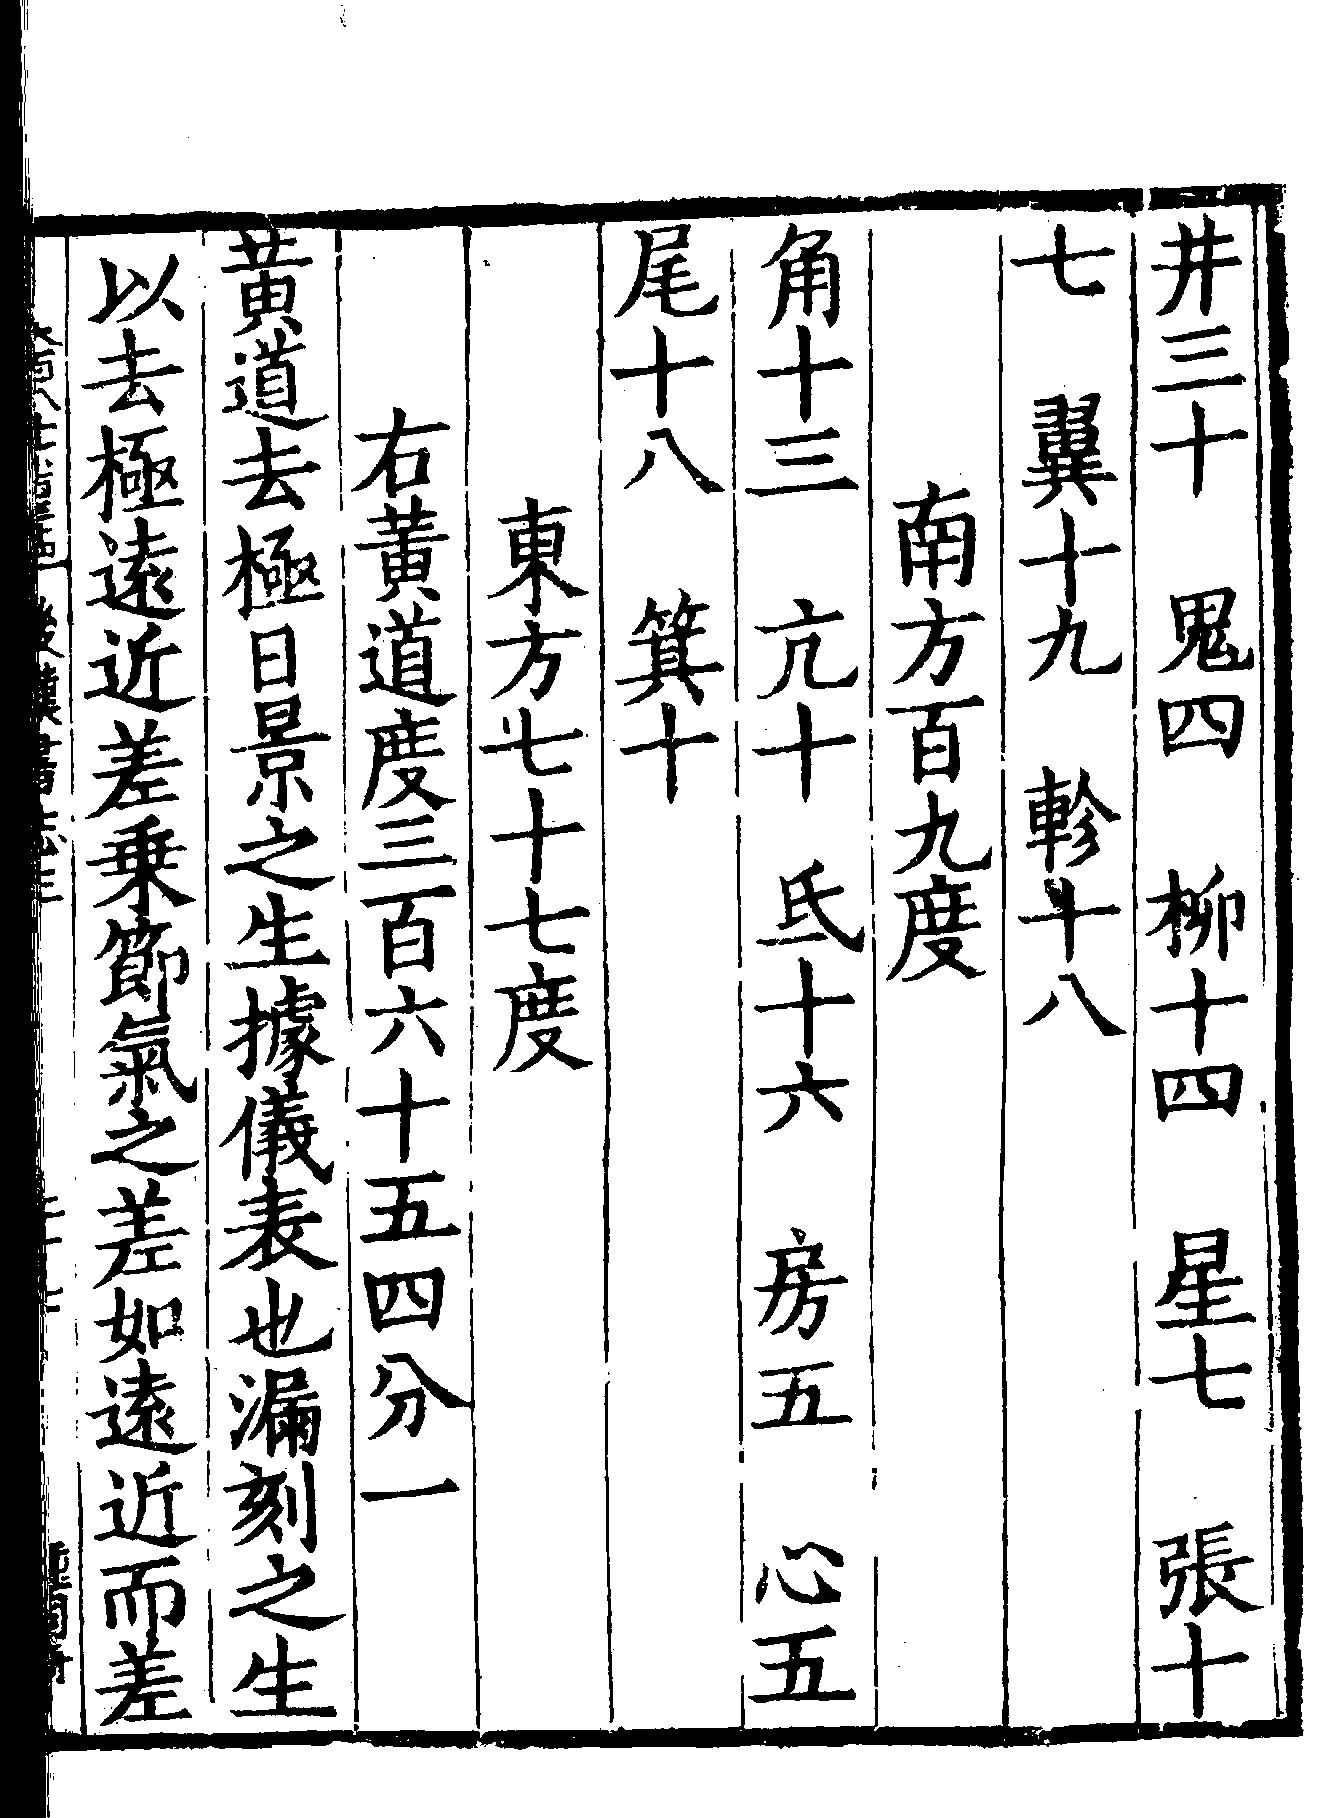 井三十　鬼四　柳十四　星七　張十
七　翼十九　軫十八
南方百九度
角十三　亢十　氐十六　房五　心五
尾十八　箕十
東方七十七度
右黃道度三百六十五四分一
黃道去極日景之生據儀表也漏刻之生
以去極遠近差乘節氣之差如遠近而差